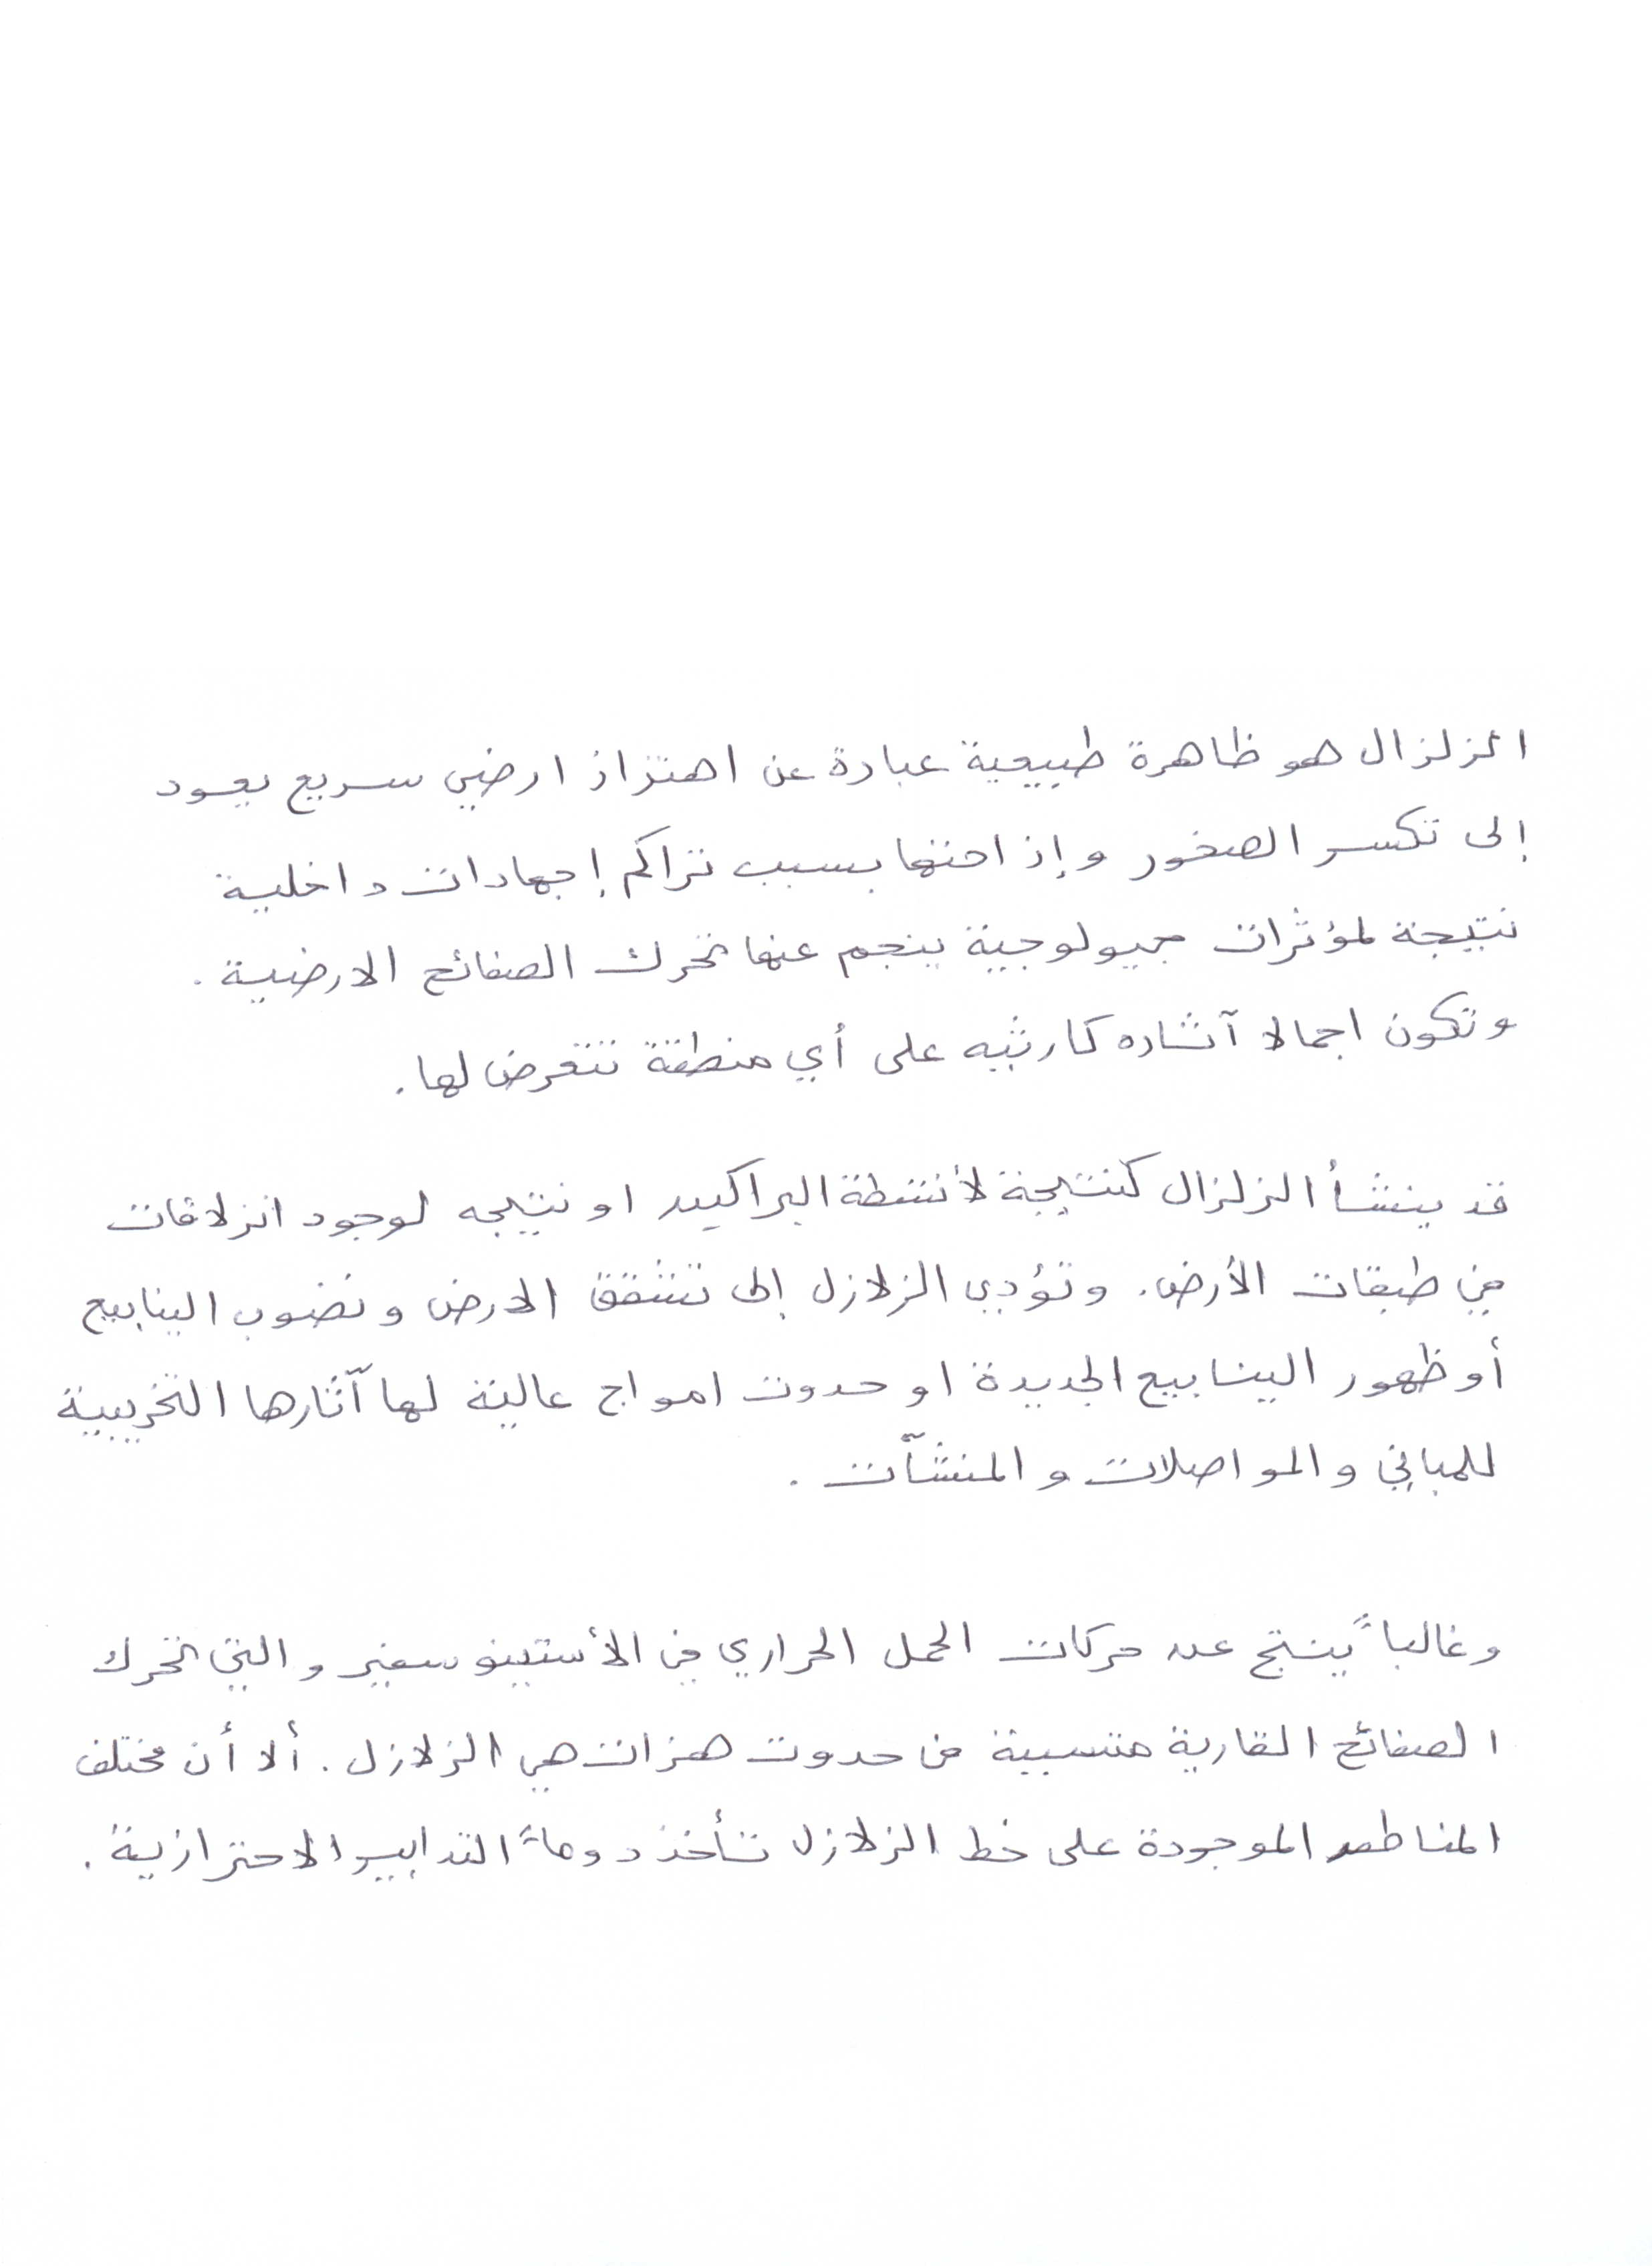 الزلزال هو ظاهرة طبيعية عبارة عن اهتزاز ارضي سريع يعود
إلى تكسر الصخور وإزاحتها بسبب تراكم إجهادات داخلية
نتيجة لمؤثرات جيولوجية ينجم عنها تحرك الصفائح الارضية .
وتكون اجمالا آثاره كارثيه على أي منطقة تتعرض لها .
قد ينشأ الزلزال كنتيجة لأنشطة البراكين او نتيجه لوجود انزلاقات
في طبقات الأرض . وتؤدي الزلازل إلى تشقق الارض ونضوب الينابيع
أو ظهور الينابيع الجديدة او حدوث امواج عالية لها آثارها التخريبية
للمباني والمواصلات والمنشآت .
وغالباً ينتج عن حركات الحمل الحراري في الأستينوسفير والتي تحرك
الصفائح القارية متسببة في حدوث هزات هي الزلازل . ألا أن مختلف
المناطق الموجودة على خط الزلازل تأخذ دوماً التدابير الاحترازية .